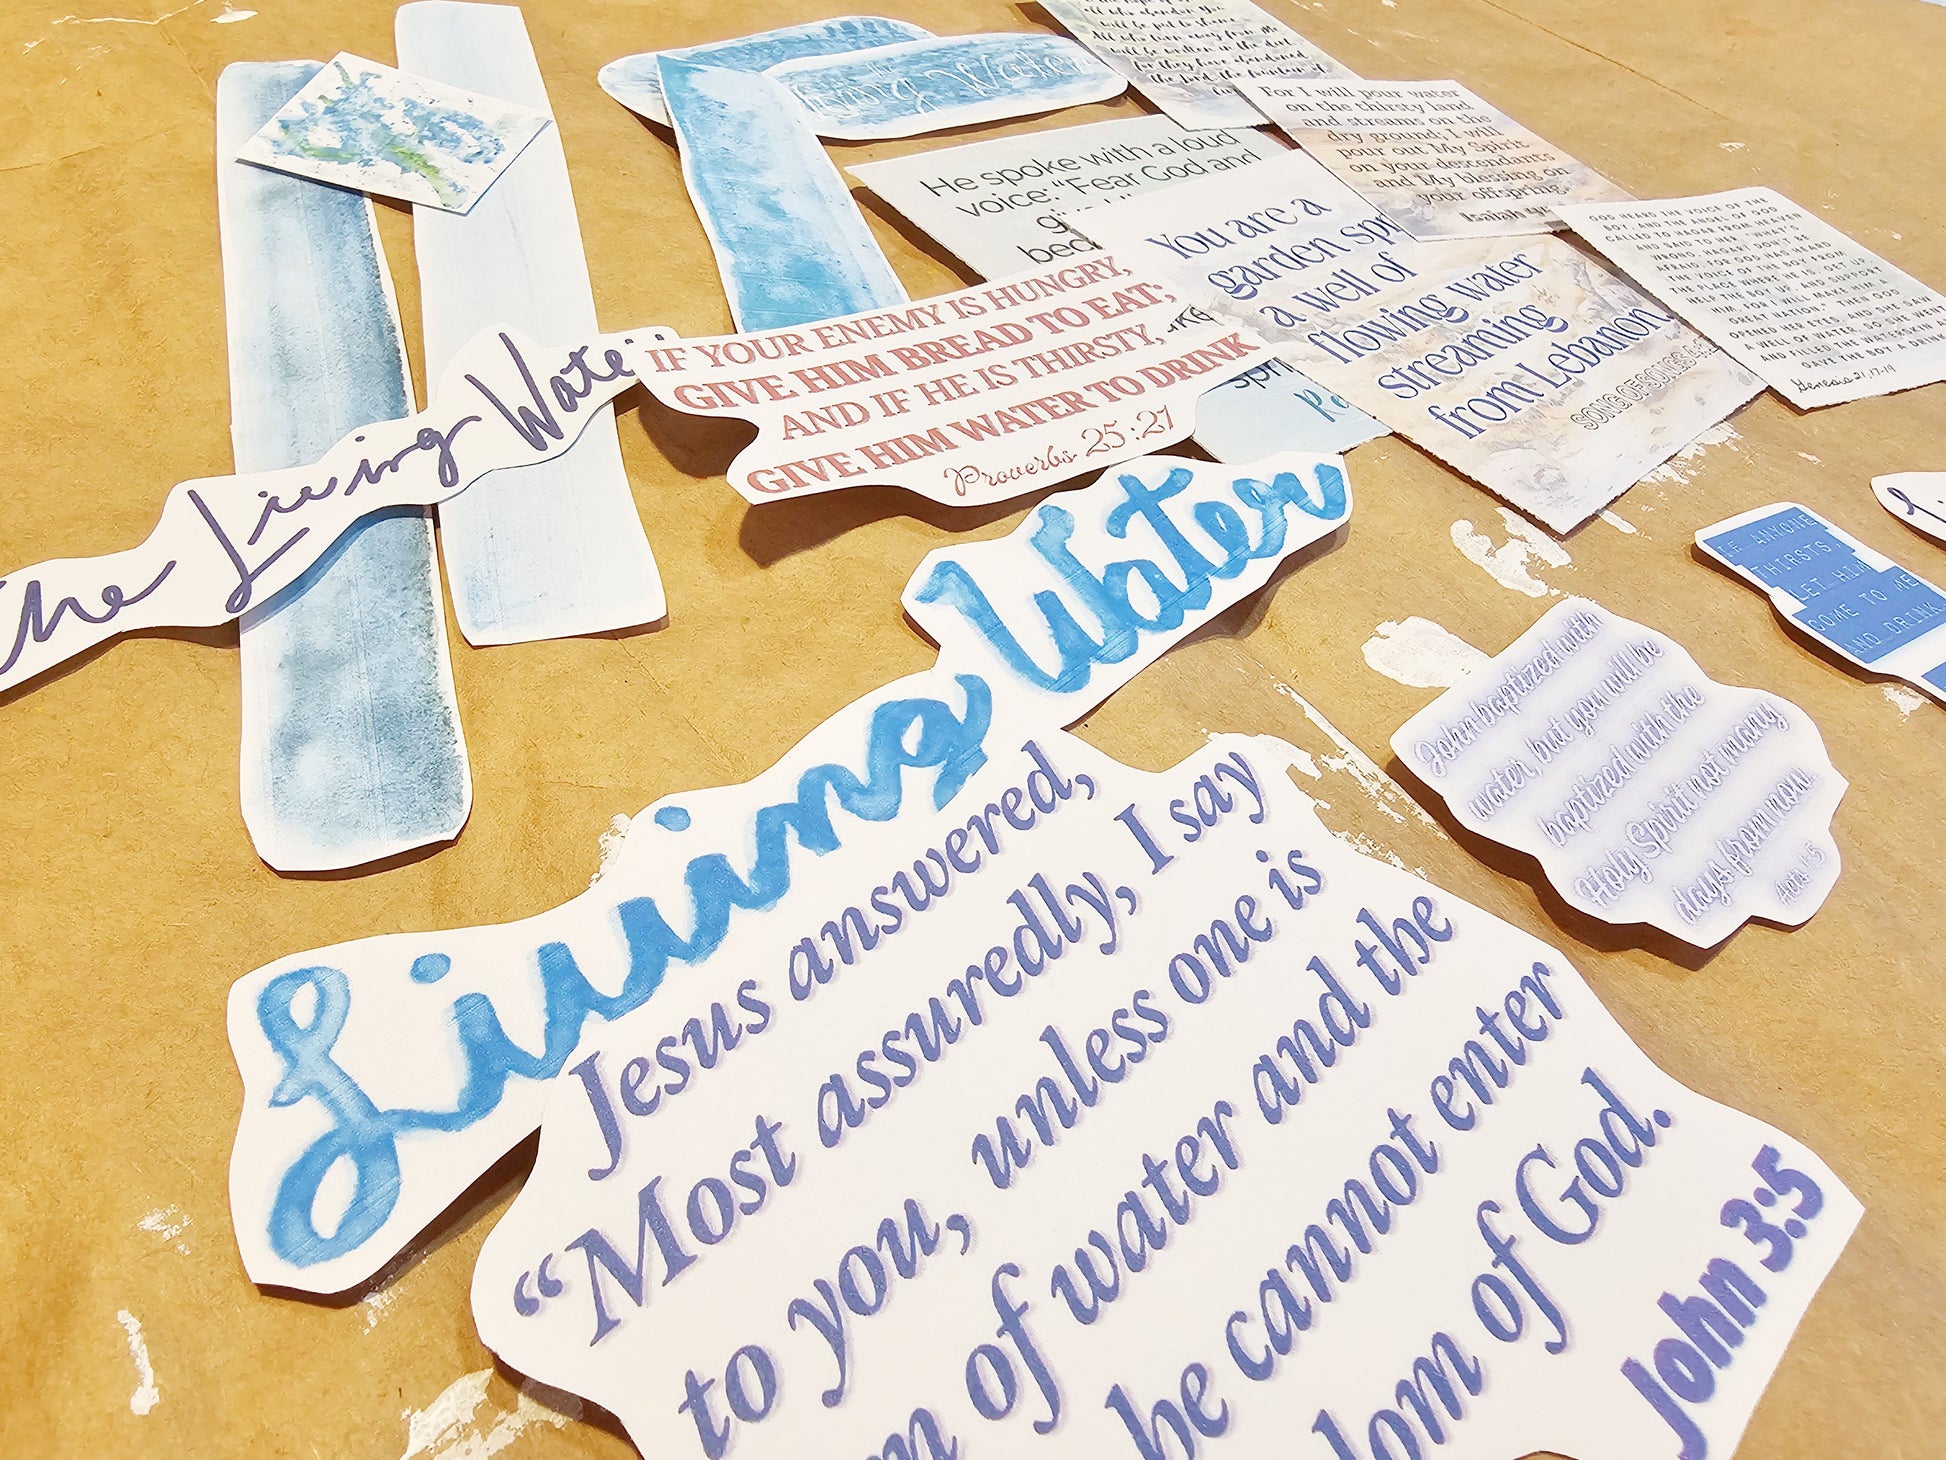 all who abandon You
will be put to shame
All who turn away from Me
will be written in the dirt
for they have abandoned
the Lord, the fountain of
For I will pour water
on the thirsty land
and streams on the
dry ground; I will
pour out My Spirit
on your descendants
and My blessing on
your offspring.
Isaiah 44
the
Living Water
He spoke with a loud
voice: “Fear God and
You are a
garden spr
a well of
flowing water
streaming
from Lebanon.
SONG OF SONGS 4:
GOD HEARD THE VOICE OF THE
BOY, AND THE ANGEL OF GOD
CALLED TO HAGAR FROM HEAVEN
AND SAID TO HER, "WHAT'S
WRONG, HAGAR? DON'T BE
AFRAID, FOR GOD HAS HEARD
THE VOICE OF THE BOY FROM
THE PLACE WHERE HE IS. GET UP,
HELP THE BOY UP, AND SUPPORT
HIM, FOR I WILL MAKE HIM A
GREAT NATION." THEN GOD
OPENED HER EYES, AND SHE SAW
A WELL OF WATER. SO SHE WENT
AND FILLED THE WATERSKIN A
GAVE THE BOY A DRINK
Genesis 21:17-19
The Living Water
IF YOUR ENEMY IS HUNGRY,
GIVE HIM BREAD TO EAT;
AND IF HE IS THIRSTY,
GIVE HIM WATER TO DRINK
Proverbs 25:21
IF ANYONE
THIRSTS,
LET HIM
COME TO ME
AND DRINK
John baptized with
water, but you will be
baptized with the
Holy Spirit not many
days from now.
Acts 1:5
Living Water
Jesus answered,
“Most assuredly, I say
to you, unless one is
of water and the
be cannot enter
dom of God.
John 3:5